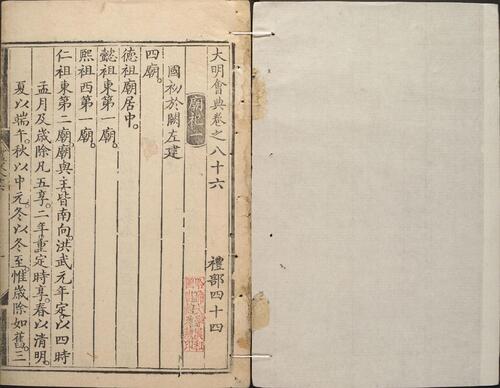 大明會典卷之八十六 禮部四十四
廟祀一
國初於闕左建
四廟。
德祖廟居中。
懿祖東第一廟。
熙祖西第一廟。
仁祖東第二廟廟與主皆南向。洪武元年定。以四時
孟月及歲除凡五享。二年重定時享。春以清明。
夏以端午。秋以中元。冬以冬至惟歲除如舊。三